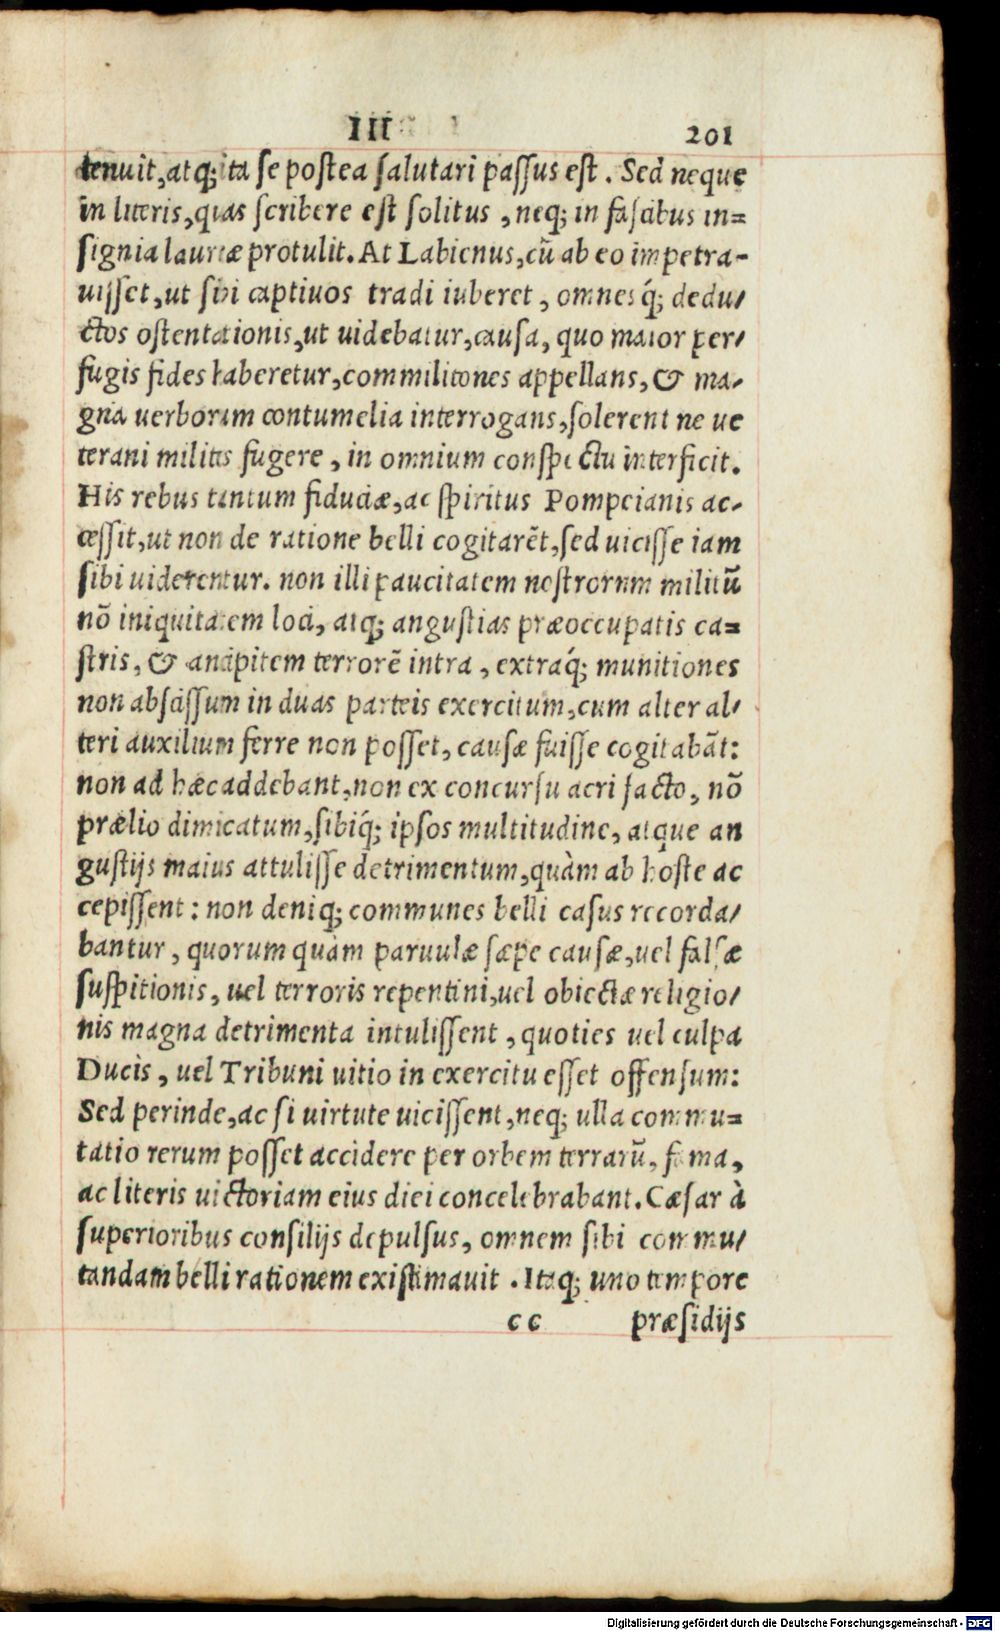 III 201
tenuit,atq; ita se postea salutari passus est. Sed neque
in literis,quas scribere est solitus, neq; in fascibus in=
signia laureæ protulit. At Labienus,cũ ab eo impetra-
uisset,ut sibi captiuos tradi iuberet, omnes q́; dedu/
ctos ostentationis,ut uidebatur,causa, quo maior per/
fugis fides haberetur,commilitones appellans,& ma-
gna uerborum contumelia interrogans,solerent ne ue
terani milites fugere, in omnium conspectu interficit.
His rebus tantum fiduciæ,ac spiritus Pompeianis ac-
cessit,ut non de ratione belli cogitarẽt,sed uicisse iam
sibi uiderentur. non illi paucitatem nostrorum militũ
nõ iniquitatem loci, atq; angustias præoccupatis ca=
stris, & ancipitem terrorẽ intra, extraq́; munitiones
non abscissum in duas parteis exercitum,cum alter al/
teri auxilium ferre non posset, causæ fuisse cogitabãt:
non ad hæc addebant,non ex concursu acri facto, nõ
prælio dimicatum,sibiq́; ipsos multitudine, atque an
gustijs maius attulisse detrimentum,quàm ab hoste ac
cepissent: non deniq; communes belli casus recorda/
bantur, quorum quàm paruulæ sæpe causæ,uel falsæ
suspitionis, uel terroris repentini,uel obiectæ religio/
nis magna detrimenta intulissent, quoties uel culpa
Ducis, uel Tribuni uitio in exercitu esset offensum:
Sed perinde,ac si uirtute uicissent,neq; ulla commu=
tatio rerum posset accidere per orbem terrarũ, fama,
ac literis uictoriam eius diei concelebrabant. Cæsar à
superioribus consilijs depulsus, omnem sibi commu/
tandam belli rationem existimauit. Itaq; uno tempore
cc præsidijs
Digitalisierung gefördert durch die Deutsche Forschungsgemeinschaft - DFG